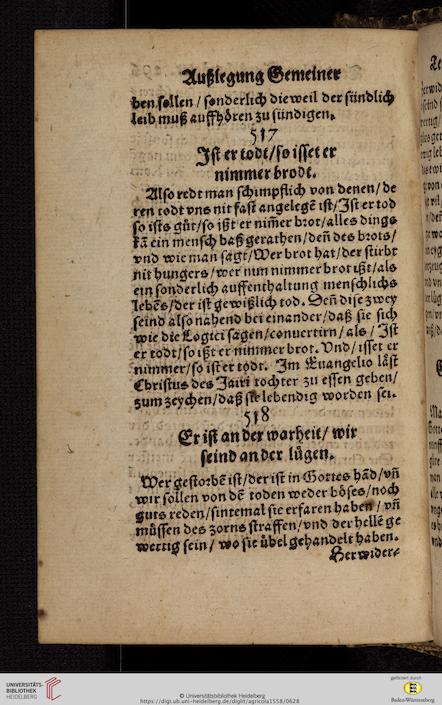 Außlegung Gemeiner
ben sollen / sonderlich dieweil der sündlich
leib muß auffhören zu sündigen.
517
Ist er todt / so isset er
nimmer brodt.
Also redt man schimpflich von denen / de
ren todt vns nit fast angelegē ist / Ist er tod
so ists gůt / so ißt er nim̄er brot / alles dings
kā ein mensch baß gerathen / deñ des brots /
vnd wie man sagt / Wer brot hat / der stirbt
nit hungers / wer nun nimmer brot ißt / als
ein sonderlich auffenthaltung menschlichs
lebēs / der ist gewißlich tod. Deñ dise zwey
seind also nahend bei einander / daß sie sich
wie die Logici sagen / conuertirn / als / Ist
er todt / so ißt er nimmer brot. Vnd / isset er
nimmer / so ist er todt. Im Euangelio läst
Christus des Jairi tochter zu essen geben /
zum zeychen / daß sie lebendig worden sei.
518
Er ist an der warheit / wir
seind an der lügen.
Wer gestorbē ist / der ist in Gottes hād / vñ
wir sollen von dē toden weder böses / noch
guts reden / sintemal sie erfaren haben / vñ
müssen des zorns straffen / vnd der hellē ge
wertig sein / wo sie übel gehandelt haben.
Herwider=
UNIVERSITÄTS-
BIBLIOTHEK
HEIDELBERG
© Universitätsbibliothek Heidelberg
https://digi.ub.uni-heidelberg.de/diglit/agricola1558/0628
gefördert durch
Baden-Württemberg